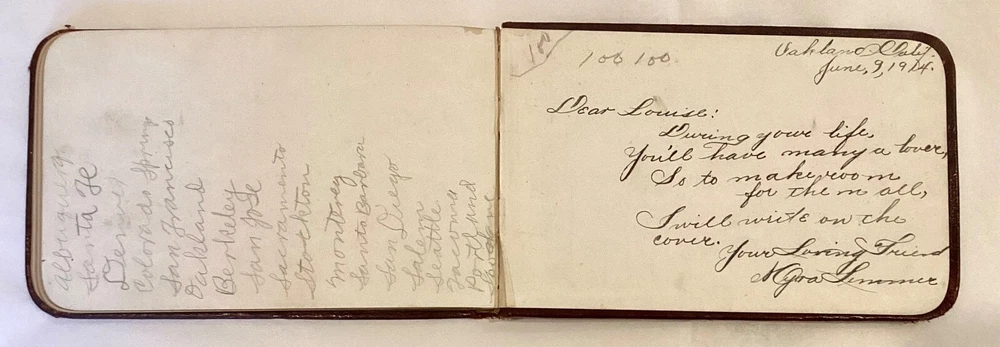 Albuquerq
Santa Fe
Denver
Colorado Spring
San Francisco
Oakland
Berkeley
San Jose
Sacramento
Stockton
Monterey
Santa Barbara
San Diego
Salem
Seattle
Tacoma
Portland
100
100 100
Oakland Calif.
June, 9, 1914.
Dear Louise:
During your life,
You'll have many a lover,
So to make room
for them all,
I will write on the
cover.
Your Loving Friend
Myra